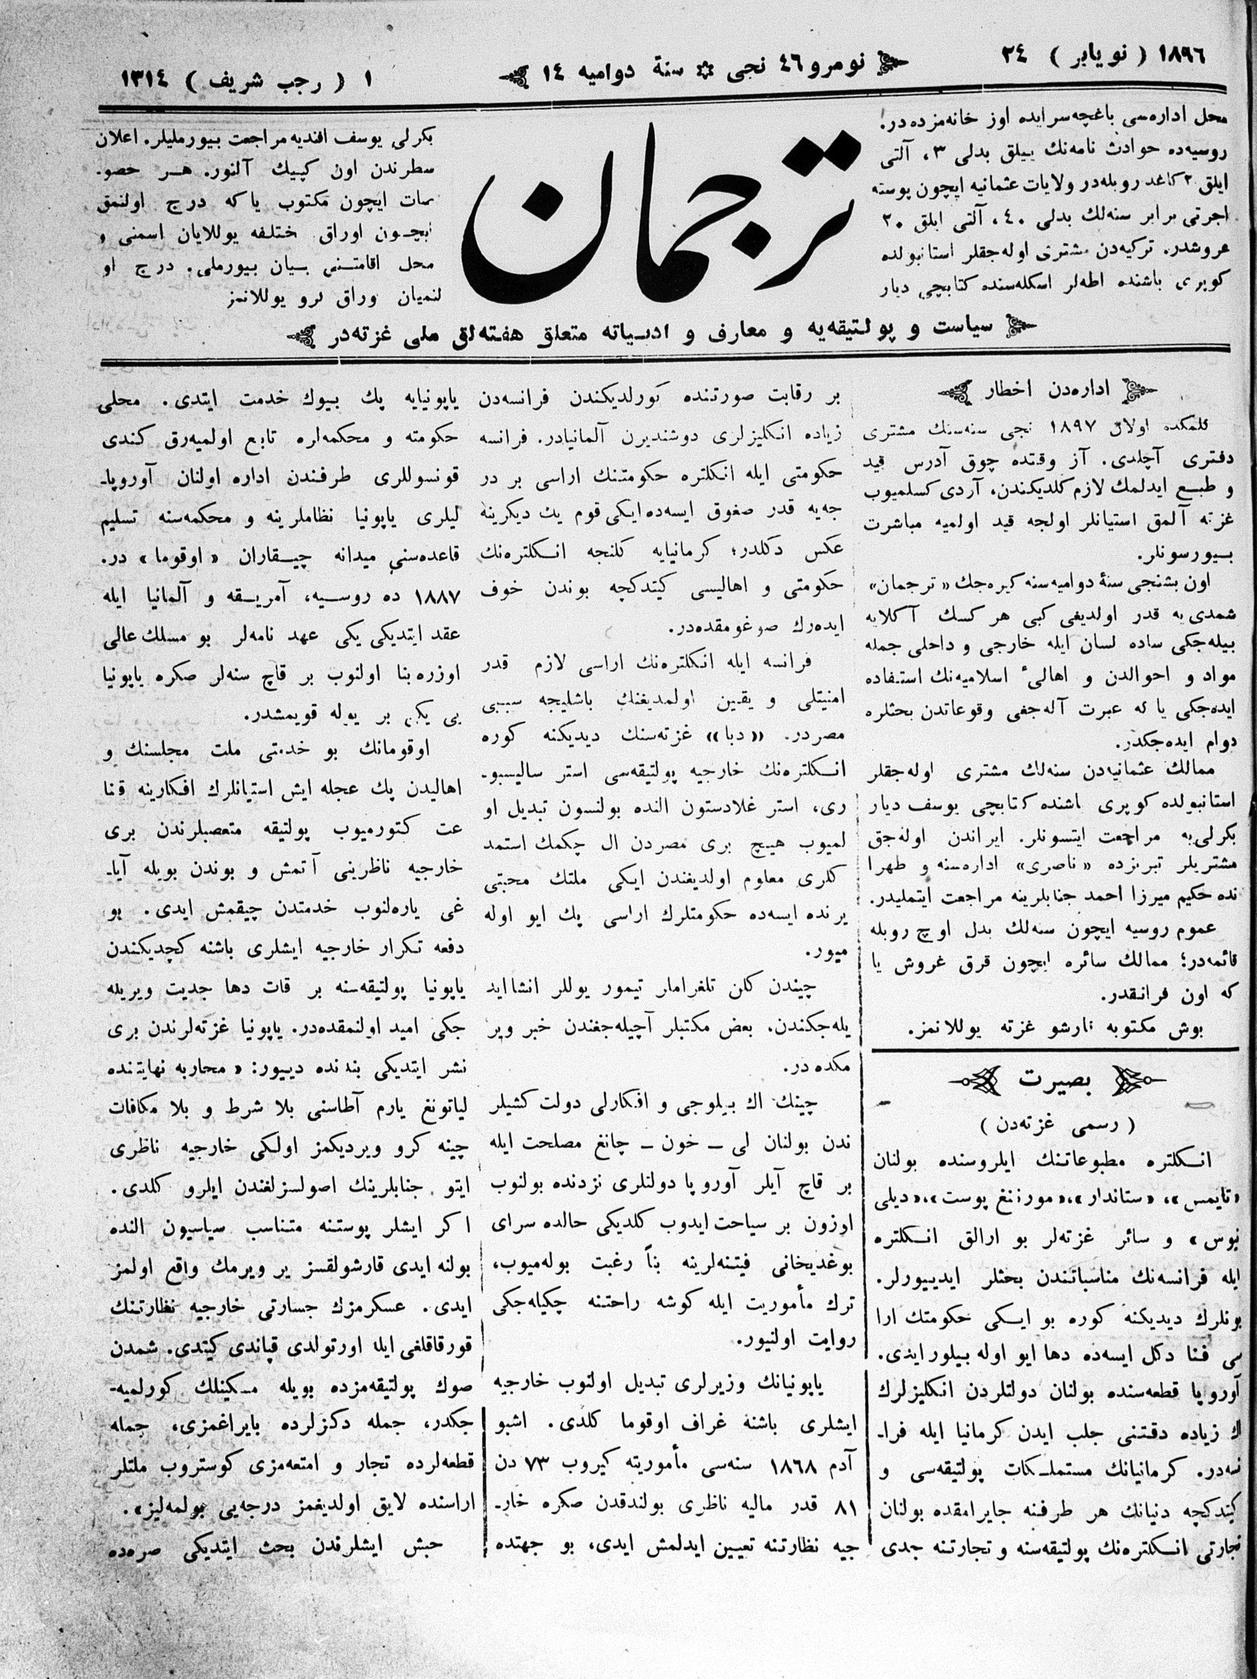 ١٨٩٦ ( نويابر ) ٢٤
نومرو ٤٦ نجى ✡ سنۀ دواميه ١٤
١ ( رجب شريف ) ١٣١٤
محل اداره‌سى باغچه‌سرايده اوز خانه‌مزده‌در.
روسيه‌ده حوادث نامه‌نك ييلق بدلى ٣، آلتى
ايلق ٢ كاغد روبله‌در ولايات عثمانيه ايچون پوسته
اجرتى برابر سنه‌لك بدلى ٤٠، آلتى ايلق ٢٠
غروشدر. تركيه‌دن مشترى اوله‌جقلر استانبولده
كوپرى باشنده اطه‌لر اسكله‌سنده كتابچى ديار
ترجمان
بكرلى يوسف افنديه مراجعت بيورمليلر. اعلان
سطرندن اون كپيك آلنور. هر خصو-
صات ايچون مكتوب ياكه درج اولنمق
ايچون اوراق مختلفه يوللايان اسمنى و
محل اقامتنى بيان بيورملى. درج او
لنميان اوراق كرو يوللانمز
سياست و پولتيقه‌يه و معارف و ادبياته متعلق هفته‌لق ملى غزته‌در
اداره‌دن اخطار
كلمكده اولان ١٨٩٧ نجى سنه‌سنك مشترى
دفترى آچلدى. آز وقتده چوق آدرس قيد
و طبع ايدلمك لازم كلديكندن، آردى كسلميوب
غزته آلمق استيانلر اولجه قيد اولميه مباشرت
بيورسونلر.
اون بشنجى سنۀ دواميه‌سنه كيره‌جك «ترجمان»
شمدى‌يه قدر اولديغى كبى هر كسك آكلايه
بيله‌جكى ساده لسان ايله خارجى و داخلى جمله
مواد و احوالدن و اهالئ اسلاميه‌نك استفاده
ايده‌جكى يا له عبرت آله‌جغى وقوعاتدن بحثلره
دوام ايده‌جكدر.
ممالك عثمانيه‌دن سنه‌لك مشترى اوله‌جقلر
استانبولده كوپرى باشنده كتابچى يوسف ديار
بكرلى‌يه مراجعت ايتسونلر. ايراندن اوله‌جق
مشتريلر تبريزده «ناصرى» اداره‌سنه و طهرا
نده حكيم ميرزا احمد جنابلرينه مراجعت ايتمليدر.
عموم روسيه ايچون سنه‌لك بدل اوچ روبله
قائمه‌در؛ ممالك سائره ايچون قرق غروش يا
كه اون فرانقدر.
بوش مكتوبه قارشو غزته يوللانمز.
بصيرت
( رسمى غزته‌دن )
انكلتره مطبوعاتنك ايلروسنده بولنان
«تايمس»، «ستاندار»، «مورننغ پوست»، «ديلى
نيوس» و سائر غزته‌لر بو ارالق انكلتره
ايله فرانسه‌نك مناسباتندن بحثلر ايدييورلر.
بونلرك ديديكنه كوره بو ايكى حكومتك ارا
سى فنا دكل ايسه‌ده دها ايو اوله بيلورايدى.
آوروپا قطعه‌سنده بولنان دولتلردن انكليزلرك
اك زياده دقتنى جلب ايدن كرمانيا ايله فرا-
نسه‌در. كرمانيانك مستملكات پولتيقه‌سى و
كيتدكچه دنيانك هر طرفنه جايرامقده بولنان
تجارتى انكلتره‌نك پولتيقه‌سنه و تجارتنه جدى
بر رقابت صورتنده كورلديكندن فرانسه‌دن
زياده انكليزلرى دوشنديرن آلمانيادر. فرانسه
حكومتى ايله انكلتره حكومتنك اراسى بر در
جه‌يه قدر صغوق ايسه‌ده ايكى قوم يك ديكرينه
عكس دكلدر؛ كرمانيايه كلنجه انكلتره‌نك
حكومتى و اهاليسى كيتدكچه بوندن خوف
ايده‌رك صوغومقده‌در.
فرانسه ايله انكلتره‌نك اراسى لازم قدر
امنيتلى و يقين اولمديغنك باشليجه سببى
مصردر. «دبا» غزته‌سنك ديديكنه كوره
انكلتره‌نك خارجيه پولتيقه‌سى استر ساليسبو-
رى، استر غلادستون النده بولنسون تبديل او
لميوب هيچ برى مصردن ال چكمك استمد
كلرى معلوم اولديغندن ايكى ملتك محبتى
يرنده ايسه‌ده حكومتلرك اراسى پك ايو اوله
ميور.
چيندن كلن تلغرامار تيمور يوللر انشاايد
يله‌جكندن، بعض مكتبلر آچيله‌جغندن خبر وير
مكده‌در.
چينك اك بيلوجى و افكارلى دولت كشيلر
ندن بولنان لى – خون – چانغ مصلحت ايله
بر قاچ آيلر آوروپا دولتلرى نزدنده بولنوب
اوزون بر سياحت ايدوب كلديكى حالده سراى
بوغديخانى فيتنه‌لرينه بناً رغبت بوله‌ميوب،
ترك مأموريت ايله كوشه راحتنه چكيله‌جكى
روايت اولنيور.
ياپونيانك وزيرلرى تبديل اولنوب خارجيه
ايشلرى باشنه غراف اوقوما كلدى. اشبو
آدم ١٨٦٨ سنه‌سى مأموريته كيروب ٧٣ دن
٨١ قدر ماليه ناظرى بولندقدن صكره خار-
جيه نظارتنه تعيين ايدلمش ايدى، بو جهتده
ياپونيايه پك بيوك خدمت ايتدى. محلى
حكومته و محكمه‌لره تابع اولميه‌رق كندى
قونسوللرى طرفندن اداره اولنان آوروپا-
ليلرى ياپونيا نظاملرينه و محكمه‌سنه تسليم
قاعده‌سنى ميدانه چيقاران «اوقوما» در.
١٨٨٧ ده روسيه، آمريقه و آلمانيا ايله
عقد ايتديكى يكى عهد نامه‌لر بو مسلك عالى
اوزره بنا اولنوب بر قاچ سنه‌لر صكره ياپونيا
يى يكى بر يوله قويمشدر.
اوقومانك بو خدمتى ملت مجلسنك و
اهاليدن پك عجله ايش استيانلرك افكارينه قنا
عت كتورميوب پولتيقه متعصبلرندن برى
خارجيه ناظرينى آتمش و بوندن بويله آيا-
غى ياره‌لنوب خدمتدن چيقمش ايدى. بو
دفعه تكرار خارجيه ايشلرى باشنه كچديكندن
ياپونيا پولتيقه‌سنه بر قات دها جديت ويريله
جكى اميد اولنمقده‌در. ياپونيا غزته‌لرندن برى
نشر ايتديكى بندنده دييور: «محاربه نهايتنده
لياتونغ يارم آطاسنى بلا شرط و بلا مكافات
چينه كرو ويرديكمز اولكى خارجيه ناظرى
ايتو جنابلرينك اصولسزلغندن ايلرو كلدى.
اكر ايشلر پوستنه متناسب سياسيون النده
بولنه ايدى قارشولقسز ير ويرمك واقع اولمز
ايدى. عسكرمزك جسارتى خارجيه نظارتنك
قورقاقلغى ايله اورتولدى قپاندى كيتدى. شمدن
صوك پولتيقه‌مزده بويله مسكينلك كورلميه-
جكدر، جمله دكزلرده بايراغمزى، جمله
قطعه‌لرده تجار و امتعه‌مزى كوستروب ملتلر
اراسنده لايق اولديغمز درجه‌يى بولمه‌ليز».
حبش ايشلرندن بحث ايتديكى صره‌ده